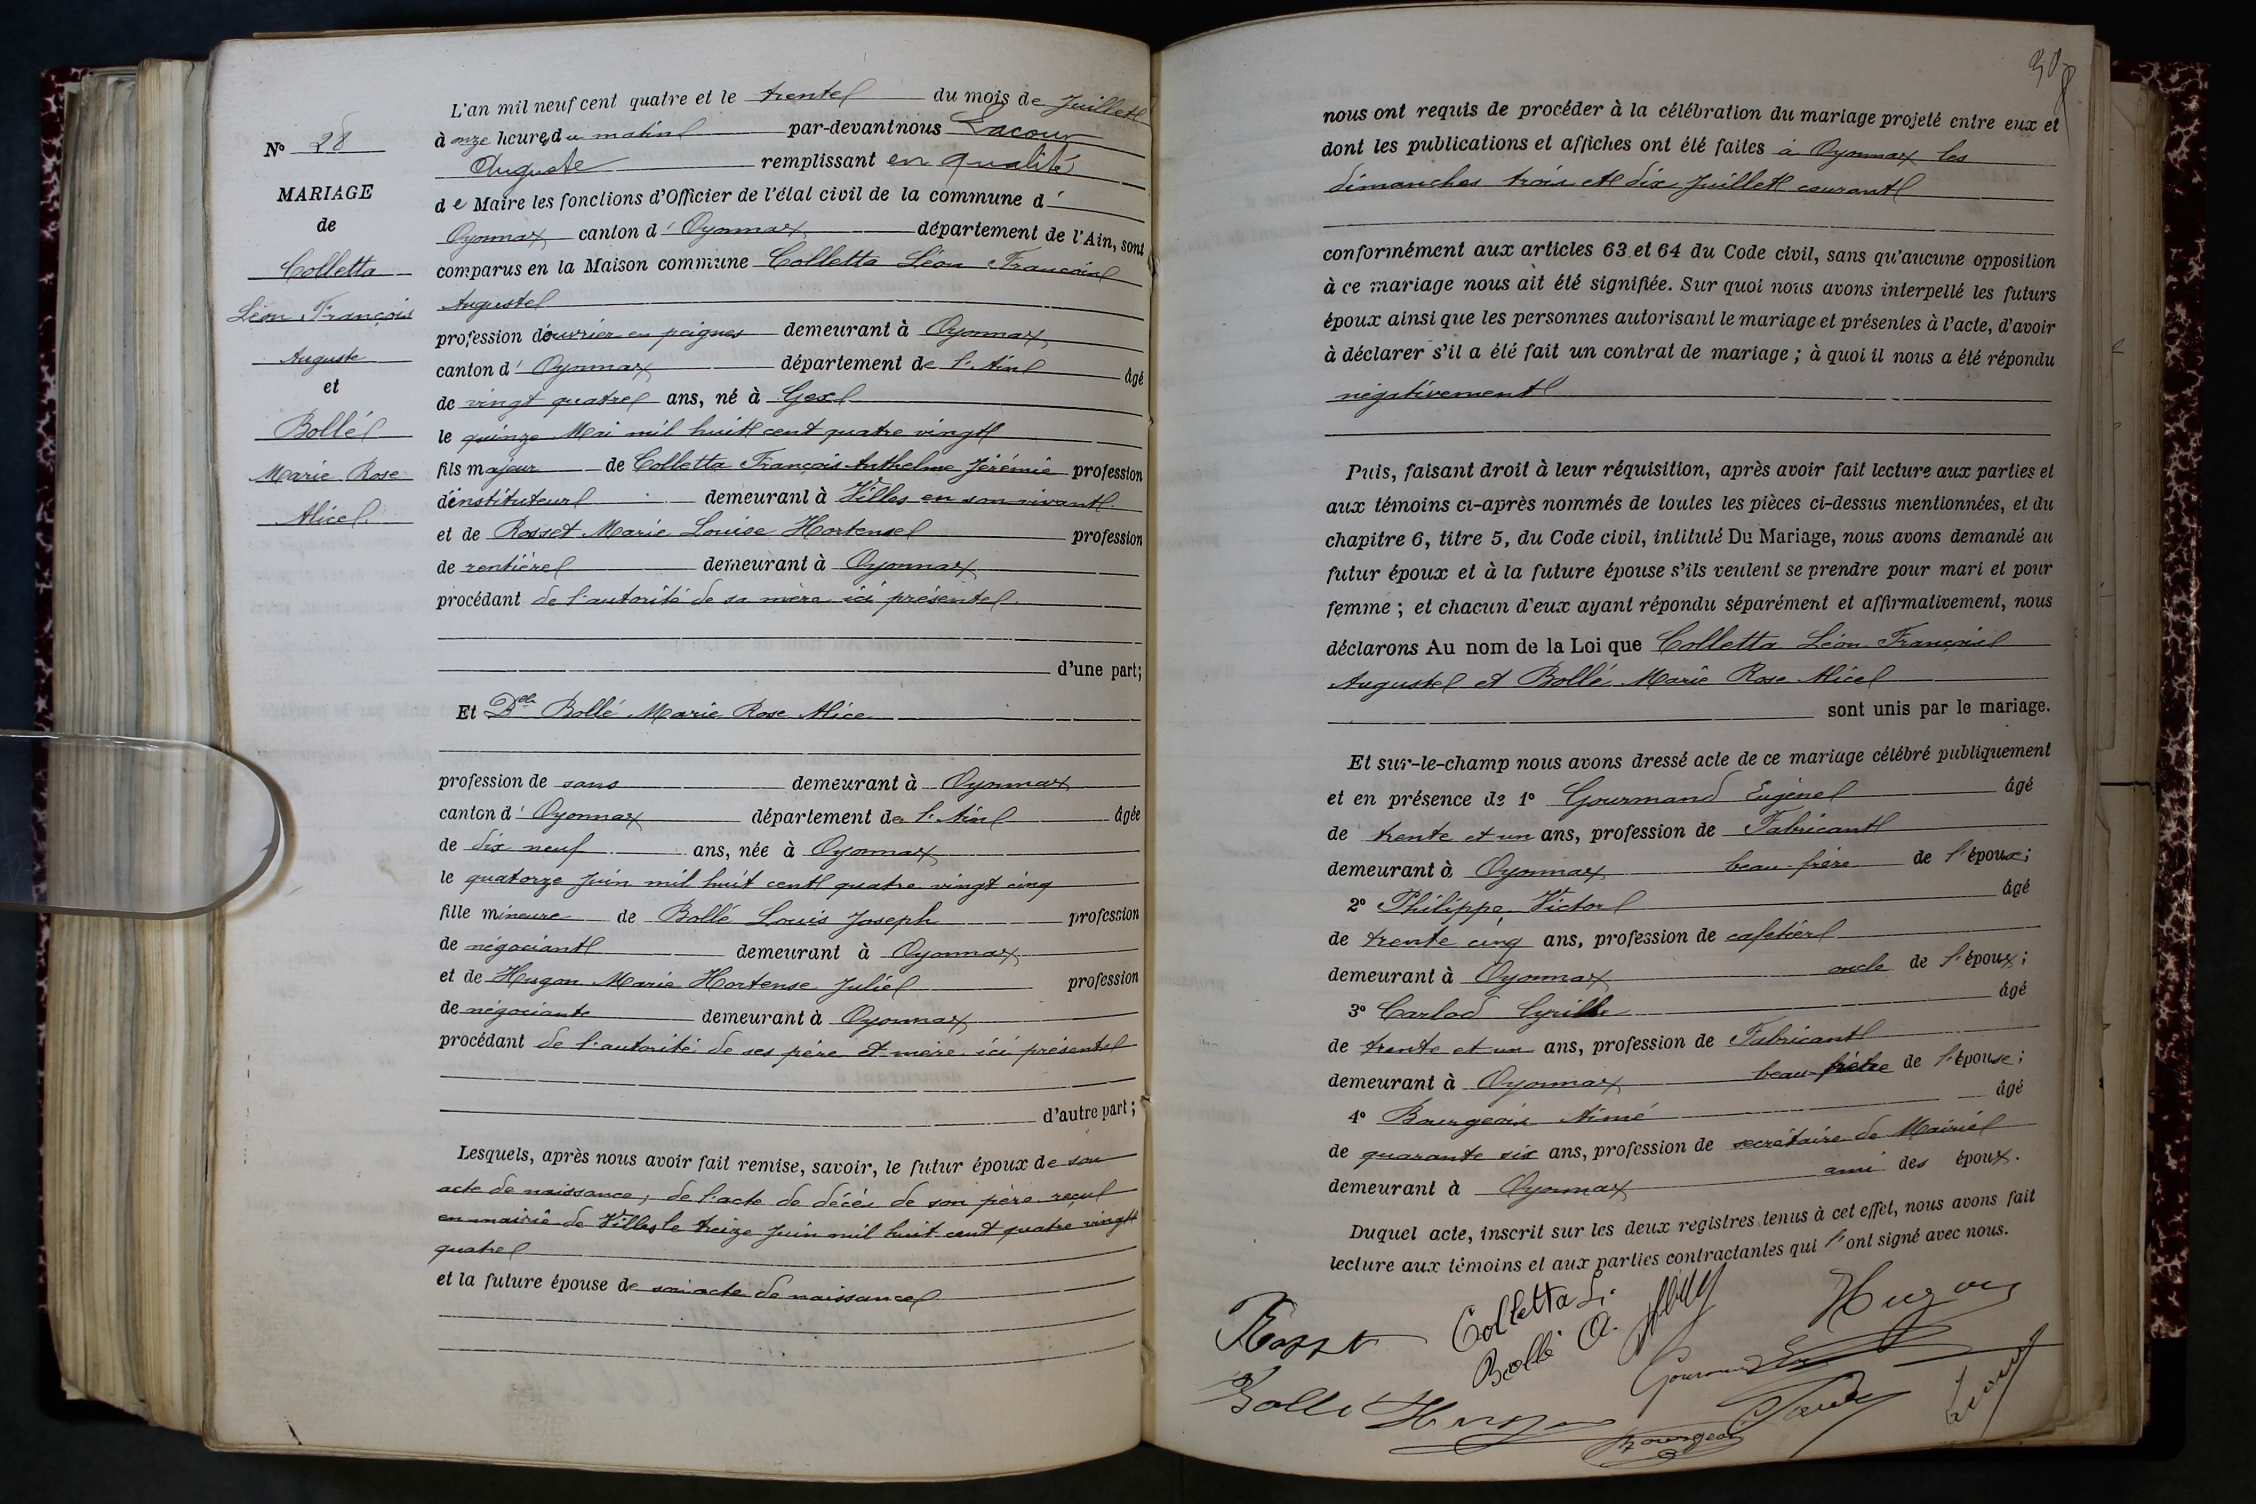 N° 28
MARIAGE
de
Colletta
Léon François
Auguste
et
Bollé
Marie Rose
Alice
L'an mil neuf cent quatre et le trente du mois de Juillet
à onze heures du matin par-devant nous Lacour
Auguste remplissant en qualité
de Maire les fonctions d'Officier de l'état civil de la commune d'
Oyonnax canton d'Oyonnax département de l'Ain, sont
comparus en la Maison commune Colletta Léon François
Auguste
profession d'ouvrier en peignes demeurant à Oyonnax
canton d'Oyonnax département de l'Ain âgé
de vingt quatre ans, né à Gex
le quinze Mai mil huit cent quatre vingt
fils majeur de Colletta François Anthelme Jérémie profession
d'instituteur demeurant à Villes en son vivant
et de Rosset Marie Louise Hortense profession
de rentière demeurant à Oyonnax
procédant de l'autorité de sa mère ici présente
d'une part;
Et Dlle Bollé Marie Rose Alice
profession de sans demeurant à Oyonnax
canton d'Oyonnax département de l'Ain âgée
de dix neuf ans, née à Oyonnax
le quatorze Juin mil huit cent quatre vingt cinq
fille mineure de Bollé Louis Joseph profession
de négociant demeurant à Oyonnax
et de Hugon Marie Hortense Julie profession
de négociante demeurant à Oyonnax
procédant de l'autorité de ses père et mère ici présents
d'autre part;
Lesquels, après nous avoir fait remise, savoir, le futur époux de son
acte de naissance, de l'acte de décès de son père reçu
en mairie de Villes le treize Juin mil huit cent quatre vingt
quatre
et la future épouse de son acte de naissance
nous ont requis de procéder à la célébration du mariage projeté entre eux et
dont les publications et affiches ont été faites à Oyonnax les
dimanches trois et dix Juillet courant
conformément aux articles 63 et 64 du Code civil, sans qu'aucune opposition
à ce mariage nous ait été signifiée. Sur quoi nous avons interpellé les futurs
époux ainsi que les personnes autorisant le mariage et présentes à l'acte, d'avoir
à déclarer s'il a été fait un contrat de mariage; à quoi il nous a été répondu
négativement
Puis, faisant droit à leur réquisition, après avoir fait lecture aux parties et
aux témoins ci-après nommés de toutes les pièces ci-dessus mentionnées, et du
chapitre 6, titre 5, du Code civil, intitulé Du Mariage, nous avons demandé au
futur époux et à la future épouse s'ils veulent se prendre pour mari et pour
femme; et chacun d'eux ayant répondu séparément et affirmativement, nous
déclarons Au nom de la Loi que Colletta Léon François
Auguste et Bollé Marie Rose Alice
sont unis par le mariage.
Et sur-le-champ nous avons dressé acte de ce mariage célébré publiquement
et en présence de 1° Gourmand Eugène âgé
de trente et un ans, profession de Fabricant
demeurant à Oyonnax beau-frère de l'époux;
2° Philippe Victor âgé
de trente cinq ans, profession de cafetier
demeurant à Oyonnax oncle de l'époux;
3° Carlod Cyrille âgé
de trente et un ans, profession de Fabricant
demeurant à Oyonnax beau-frère de l'épouse;
4° Bourgeois Aimé âgé
de quarante six ans, profession de secrétaire de Mairie
demeurant à Oyonnax ami des époux.
Duquel acte, inscrit sur les deux registres tenus à cet effet, nous avons fait
lecture aux témoins et aux parties contractantes qui l'ont signé avec nous.
Rosset Colletta L. Hugon
Bollé A. Gourmand
Bollé Hugon Bourgeois